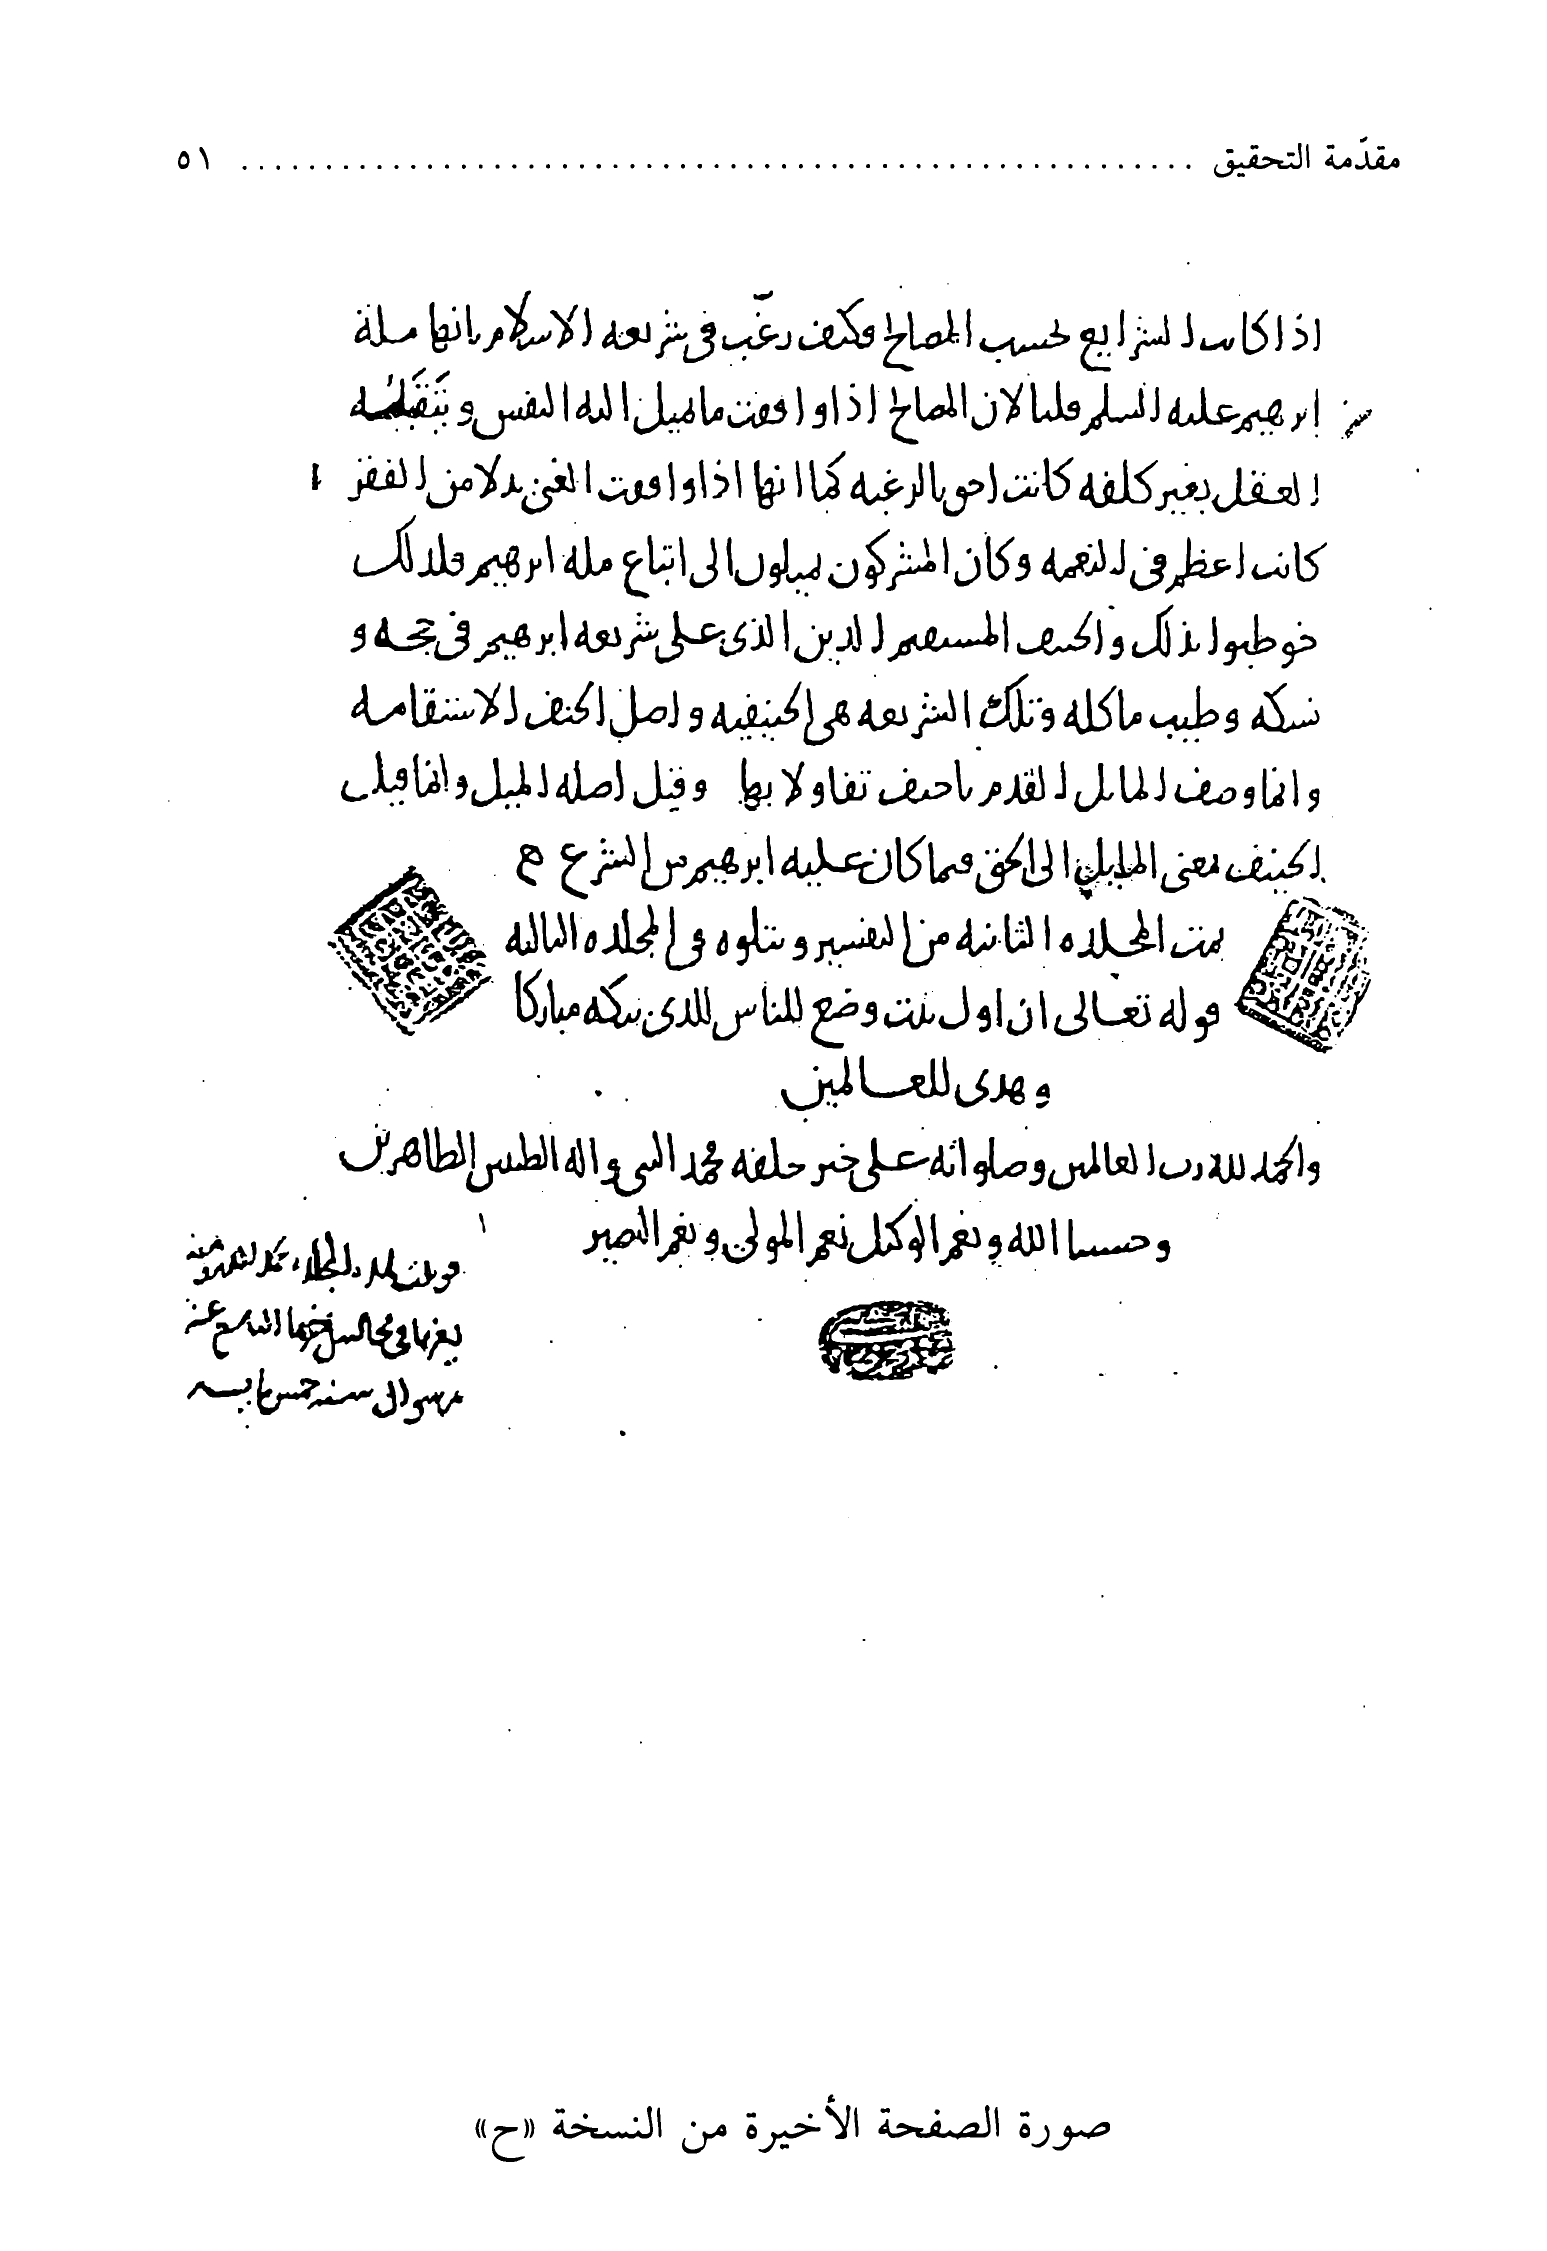 مقدّمة التحقيق ............................................................ ٥١
اذا كانت الشرايع بحسب المصالح فكيف رغّب فى شريعه الاسلام بانها ملة
ابرهيم عليه السلم قلنا لان المصالح اذا وافقت ما يميل اليه النفس ويتقبله
العقل بغير كلفه كانت احق بالرغبه كما انها اذا وافقت الغنى بدلا من الفقر
كانت اعظم فى النعمه وكان المشركون يميلون الى اتباع مله ابرهيم فلذلك
خوطبوا بذلك والحنيف المستقيم الدين الذى على شريعه ابرهيم فى حجه و
نسكه وطيب ماكله وتلك الشريعه هى الحنيفيه واصل الحنف الاستقامه
وانما وصف المايل القدم باحنف تفاولا بها وقيل اصله الميل وانما قيل
الحنيف بمعنى المايل الى الحق فيما كان عليه ابرهيم من الشرع
تمت المجلده الثانيه من التفسير ويتلوه فى المجلده الثالثه
قوله تعالى ان اول بيت وضع للناس للذى ببكه مباركا
وهدى للعالمين
والحمد لله رب العالمين وصلواته على خير خلقه محمد النبى واله الطيبين الطاهرين
وحسبنا الله ونعم الوكيل نعم المولى ونعم النصير
صورة الصفحة الأخيرة من النسخة «ح»